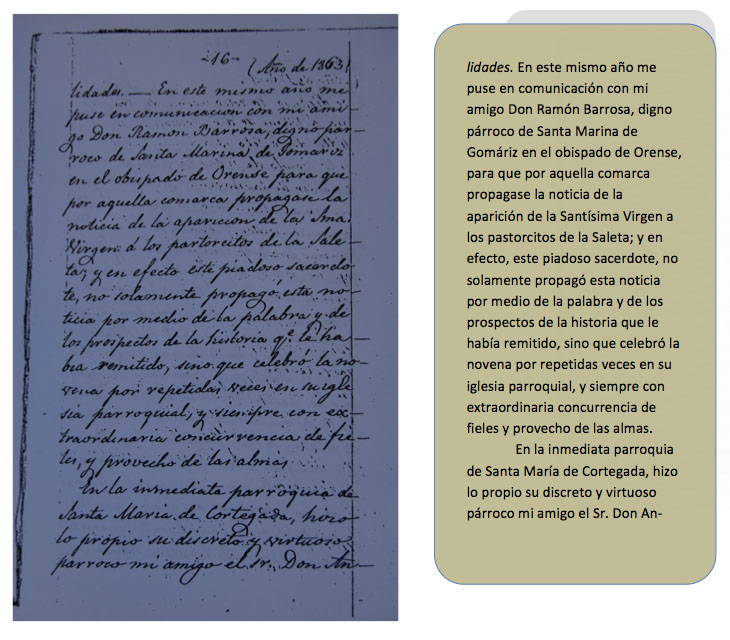 -16- (Año de 1863)
lidades. — En este mismo año me
puse en comunicacion con mi ami-
go Don Ramon Barrosa, digno pár-
roco de Santa Marina de Gomariz
en el obispado de Orense para que
por aquella comarca propagase la
noticia de la aparicion de la Sma.
Virgen á los partorcitos de la Sale-
ta; y en efecto este piadoso sacerdo-
te, no solamente propagó esta no-
ticia por medio de la palabra y de
los prospectos de la historia qe. le ha-
bia remitido, sino que celebró la no-
vena por repetidas veces en su igle-
sia parroquial, y siempre con ex-
traordinaria concurrencia de fie-
les, y provecho de las almas.
En la inmediata parroquia de
Santa Maria de Cortegada, hizo
lo propio su discreto y virtuoso
parroco mi amigo el Sr. Don An-
lidades. En este mismo año me
puse en comunicación con mi
amigo Don Ramón Barrosa, digno
párroco de Santa Marina de
Gomáriz en el obispado de Orense,
para que por aquella comarca
propagase la noticia de la
aparición de la Santísima Virgen a
los pastorcitos de la Saleta; y en
efecto, este piadoso sacerdote, no
solamente propagó esta noticia
por medio de la palabra y de los
prospectos de la historia que le
había remitido, sino que celebró la
novena por repetidas veces en su
iglesia parroquial, y siempre con
extraordinaria concurrencia de
fieles y provecho de las almas.
En la inmediata parroquia
de Santa María de Cortegada, hizo
lo propio su discreto y virtuoso
párroco mi amigo el Sr. Don An-